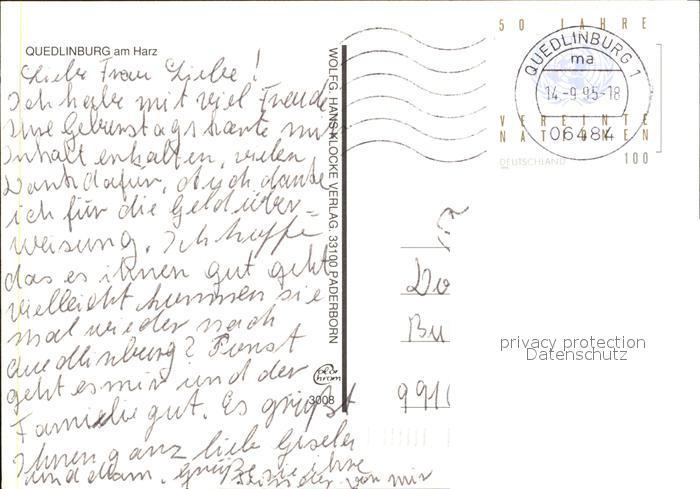 QUEDLINBURG am Harz
Liebe Frau Liebe!
Ich habe mit viel Freude
Ihre Geburstagskarte mit
Inhalt erhalten, vielen
Dank dafür, auch danke
ich für die Geldüber=
weisung. Ich hoffe
das es ihnen gut geht
vielleicht kommen sie
mal wieder nach
Quedlinburg? Sonst
geht es mir und der
Familie gut. Es grüßt
Ihnen ganz lieb Gisela
und Mann. grüße sie ihre
Kinder von mir
WOLFG. HANS KLOCKE VERLAG. 33100 PADERBORN
3008
50 JAHRE
VEREINTE
NATIONEN
DEUTSCHLAND
100
QUEDLINBURG 1
ma
14.-9.95-18
06484
Do
Bu
991
privacy protection
Datenschutz